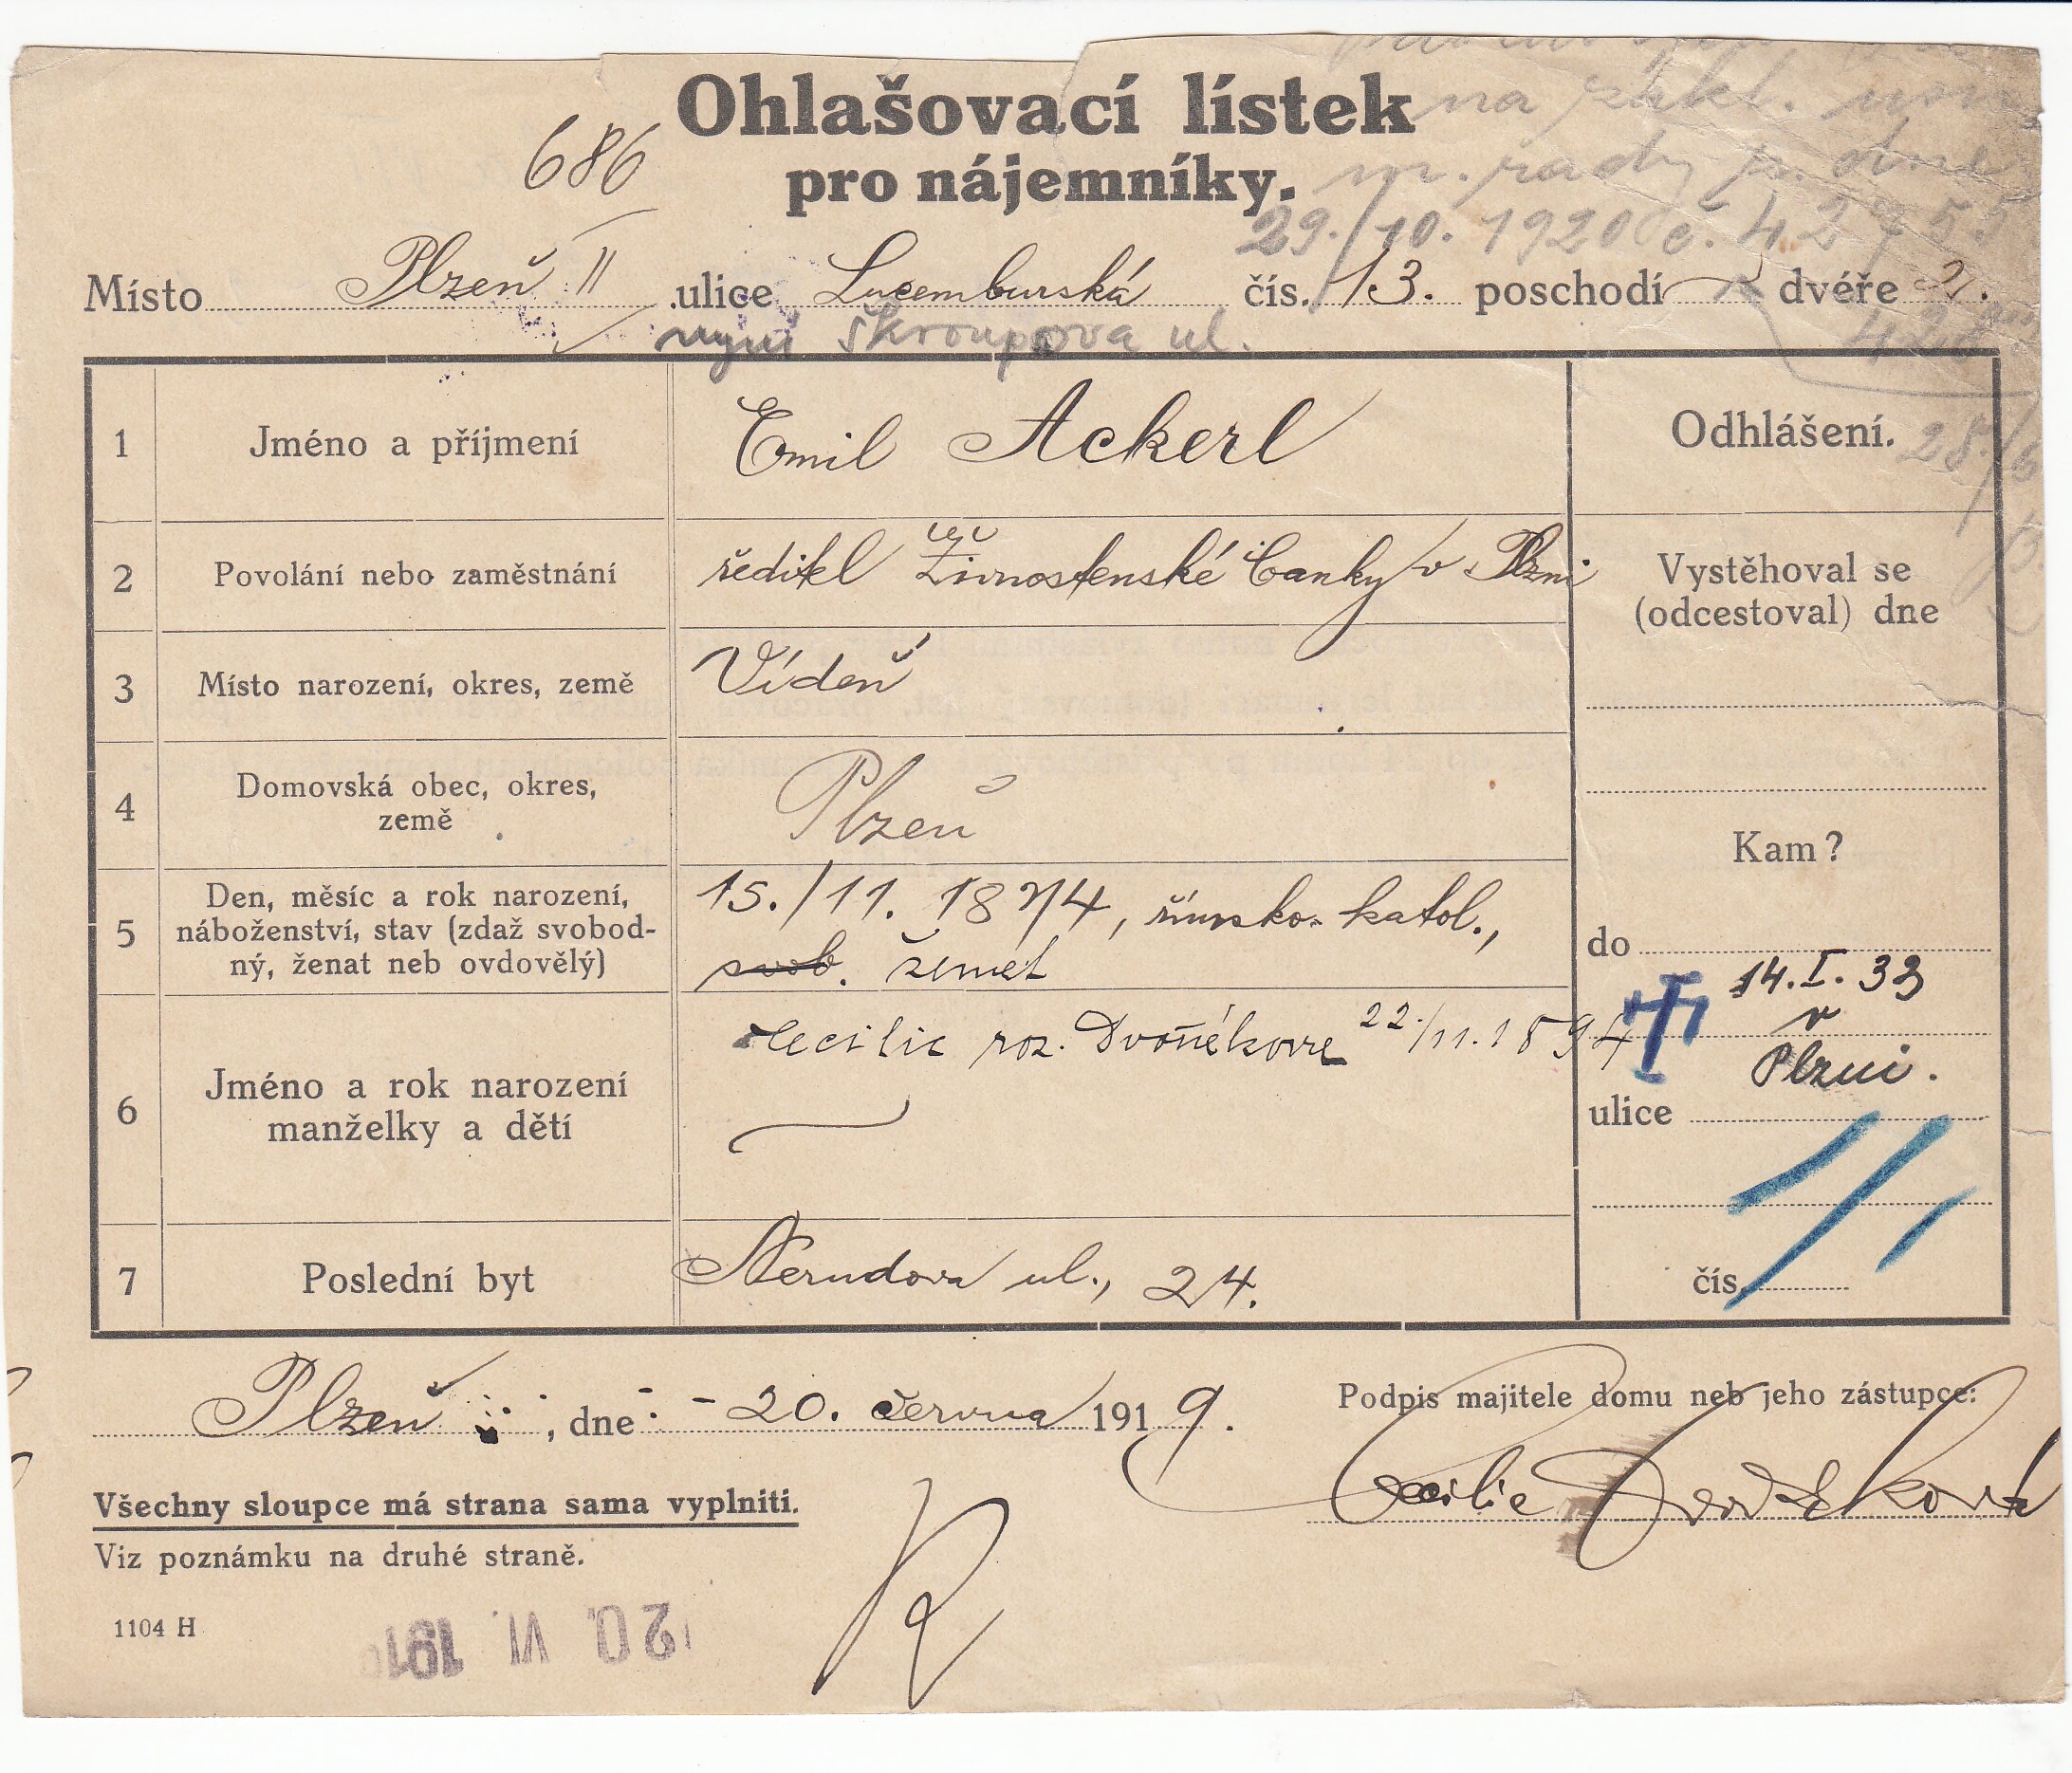 Ohlašovací lístek
pro nájemníky.
686
na zákl. usn.
m. rady p. dne
29./10. 1920 č. 42755
Místo Plzeň II ulice Lucemburská čís. 13. poschodí dvéře 2.
nyní Škroupova ul.
1 Jméno a příjmení Emil Ackerl
Odhlášení.
28./6
2 Povolání nebo zaměstnání ředitel Živnostenské banky v Plzni
Vystěhoval se
(odcestoval) dne
3 Místo narození, okres, země Vídeň
4 Domovská obec, okres,
země
Plzeň
Kam?
5 Den, měsíc a rok narození,
náboženství, stav (zdaž svobod-
ný, ženat neb ovdovělý)
15./11. 1874, římsko-katol.,
svob. ženat
do
14. I. 33
v
Plzni.
6 Jméno a rok narození
manželky a dětí
Cecilie roz. Dvořáková 22./11. 1894
ulice
7 Poslední byt Nerudova ul., 24.
čís.
Plzeň, dne 20. června 1919.
Podpis majitele domu neb jeho zástupce:
Cecilie Dvořáková
Všechny sloupce má strana sama vyplniti.
Viz poznámku na druhé straně.
1104 H
20. VI. 191